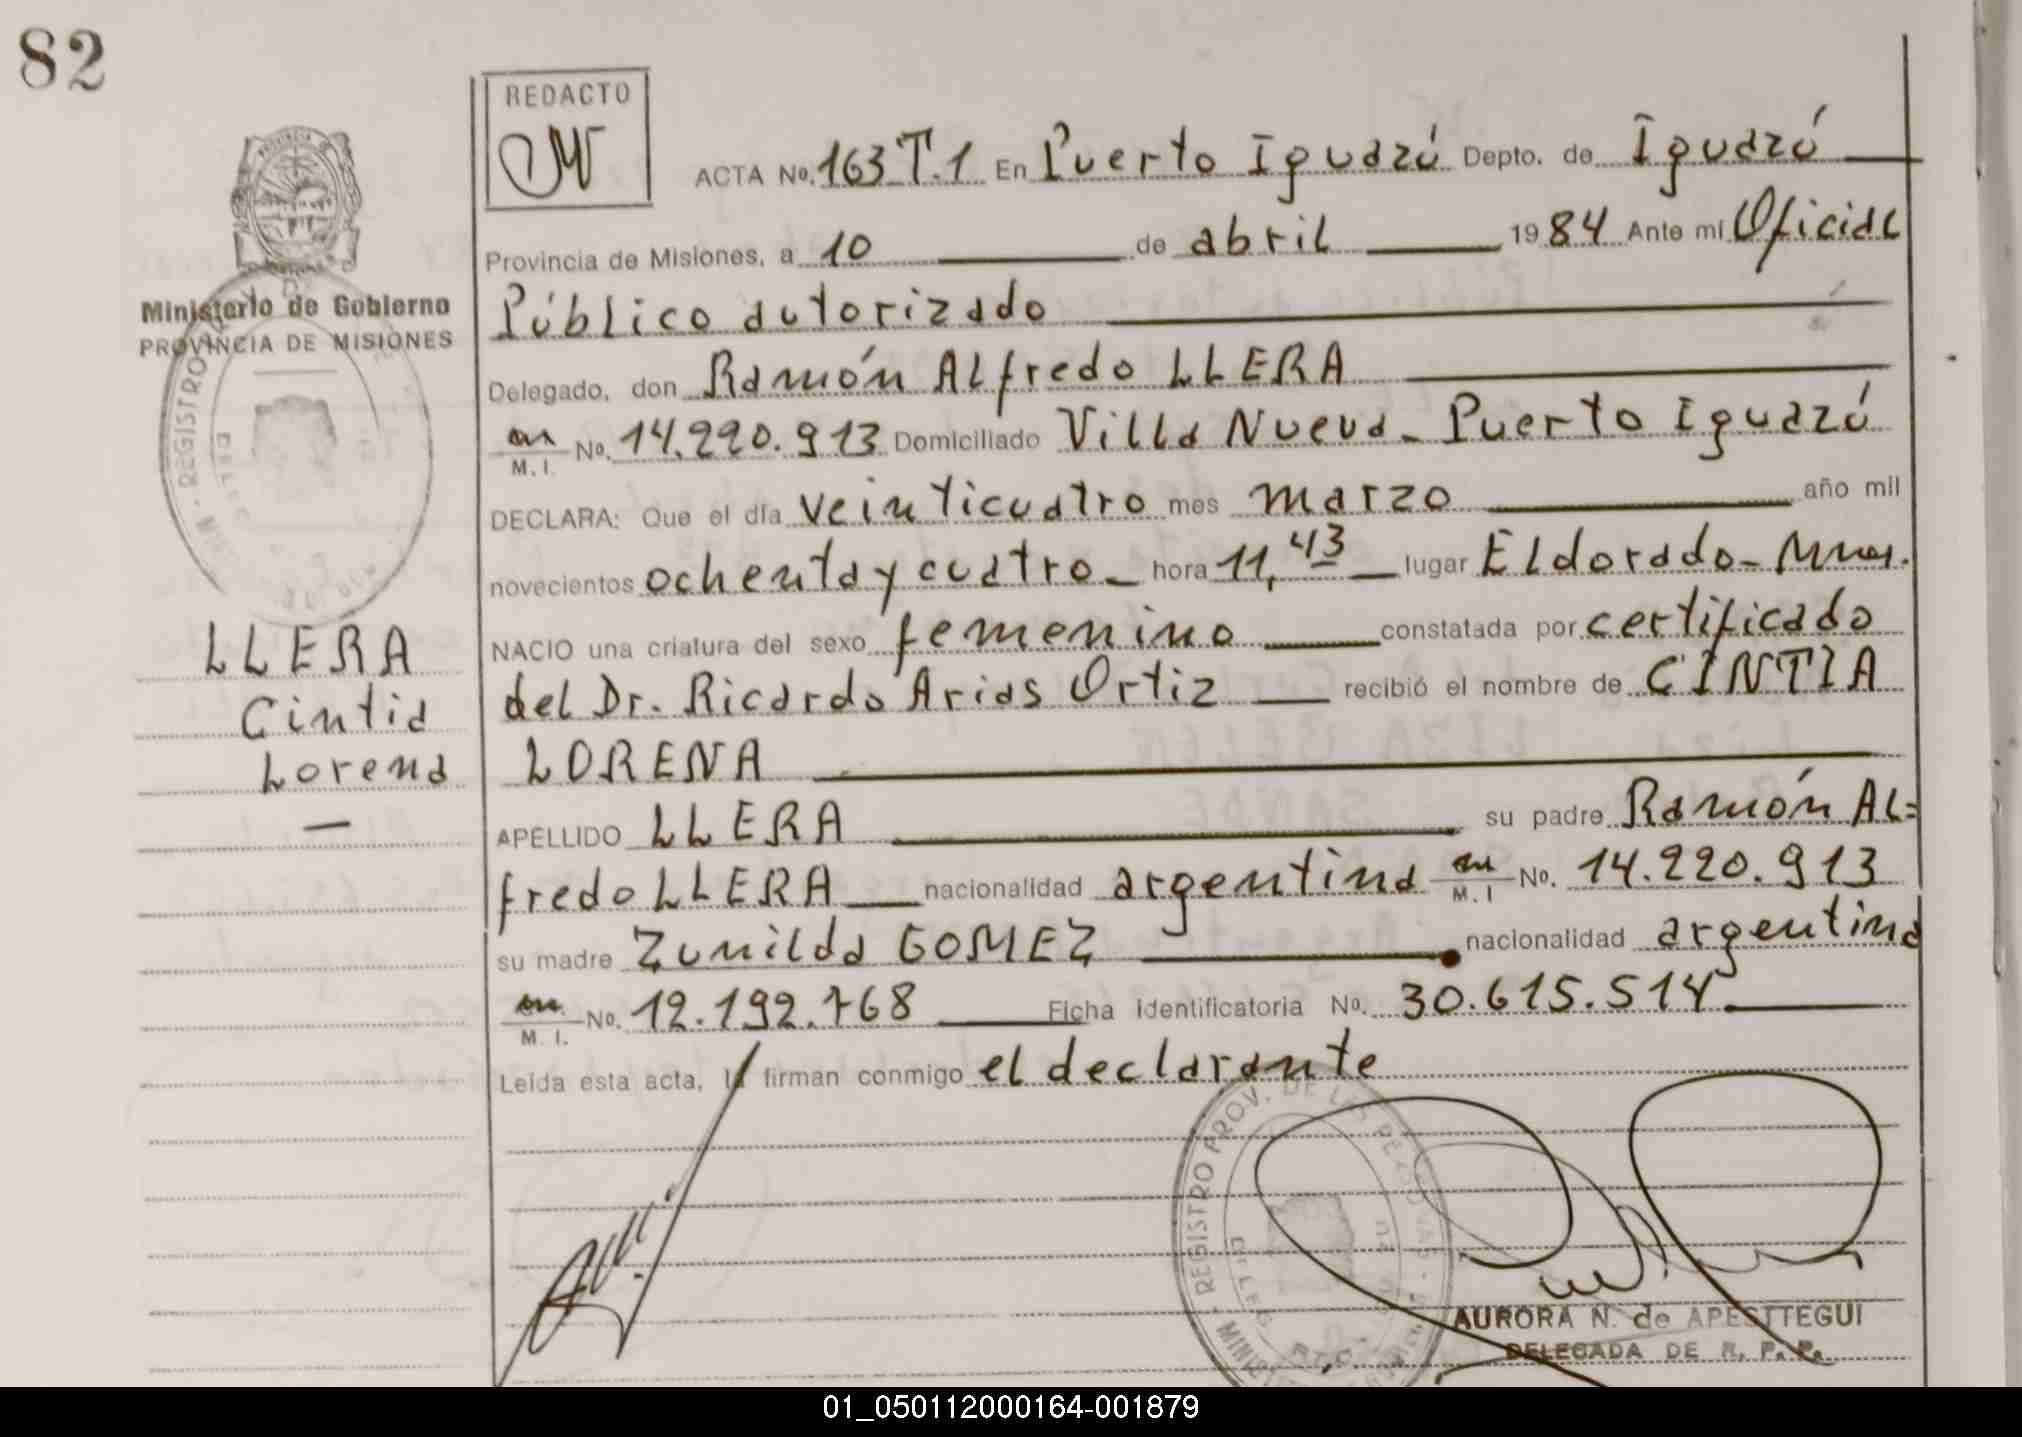 82
REDACTO
ACTA No. 163 T.1 En Puerto Iguazú Depto. de Iguazú
Provincia de Misiones, a 10 de abril 1984 Ante mí Oficial
Público autorizado
Delegado, don Ramón Alfredo LLERA
M. I. No. 14.220.913 Domiciliado Villa Nueva - Puerto Iguazú
DECLARA: Que el día veinticuatro mes marzo año mil
novecientos ochenta y cuatro - hora 11,43 lugar Eldorado - Mnes.
NACIO una criatura del sexo femenino constatada por certificado
del Dr. Ricardo Arias Ortiz recibió el nombre de CINTIA
LORENA
APELLIDO LLERA su padre Ramón Al=
fredo LLERA nacionalidad argentina M. I No. 14.220.913
su madre Zunilda GOMEZ nacionalidad argentina
M. I. No. 12.192.768 Ficha identificatoria No. 30.615.514
Leída esta acta, la firman conmigo el declarante
Ministerio de Gobierno
PROVINCIA DE MISIONES
LLERA
Cintia
Lorena
REGISTRO PROV. DE LAS PERSONAS
AURORA N. de APESTTEGUI
DELEGADA DE R. P. P.
01_050112000164-001879